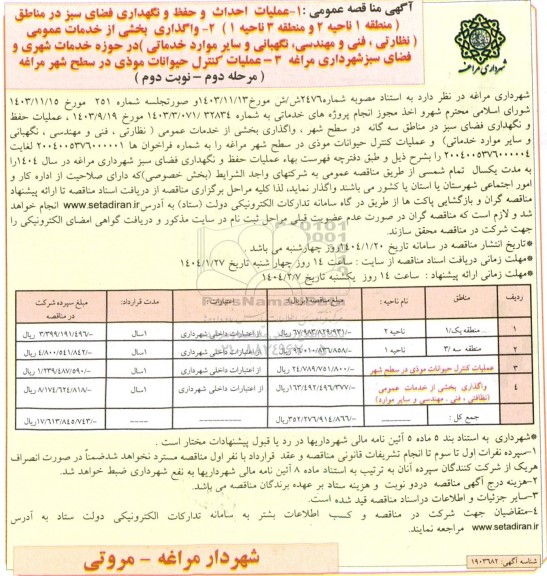 آگهی مناقصه عمومی :۱-عملیات احداث و حفظ و نگهداری فضای سبز در مناطق
( منطقه ۱ ناحیه ۲ و منطقه ۳ ناحیه ۱ ) ۲- واگذاری بخشی از خدمات عمومی
( نظارتی ، فنی و مهندسی، نگهبانی و سایر موارد خدماتی )در حوزه خدمات شهری و
فضای سبزشهرداری مراغه ۳ -عملیات کنترل حیوانات موذی در سطح شهر مراغه
( مرحله دوم - نوبت دوم )
شهرداری مراغه
شهرداری مراغه در نظر دارد به استناد مصوبه شماره۲۴۷۶/ش/ش مورخ۱۴۰۳/۱۱/۱۳ و صورتجلسه شماره ۲۵۱ مورخ ۱۴۰۳/۱۱/۱۵
شورای اسلامی محترم شهر و اخذ مجوز انجام پروژه های خدماتی به شماره ۳۲۸۳۴ /۱۴۰۳/۳۰۷۱ مورخ ۱۴۰۳/۹/۱۹ ، عملیات حفظ
و نگهداری فضای سبز در مناطق سه گانه در سطح شهر ، واگذاری بخشی از خدمات عمومی ( نظارتی ، فنی و مهندسی ، نگهبانی
و سایر موارد خدماتی) و عملیات کنترل حیوانات موذی در سطح شهر مراغه را به شماره فراخوان ها ۲۰۰۴۰۰۵۳۷۶۰۰۰۰۰۱ لغایت
۲۰۰۴۰۰۵۳۷۶۰۰۰۰۰۴ را بشرح ذیل و طبق دفترچه فهرست بهاء عملیات حفظ و نگهداری فضای سبز شهرداری مراغه در سال ۱۴۰۴را
به مدت یکسال تمام شمسی از طریق مناقصه عمومی به شرکتهای واجد الشرایط (بخش خصوصی)که دارای صلاحیت از اداره کار و
امور اجتماعی شهرستان یا استان یا کشور می باشند واگذار نماید، لذا کلیه مراحل برگزاری مناقصه از دریافت اسناد مناقصه تا ارائه پیشنهاد
مناقصه گران و بازگشایی پاکت ها از طریق در گاه سامانه تدارکات الکترونیکی دولت (ستاد) به آدرس www.setadiran.ir انجام خواهد
شد و لازم است که مناقصه گران در صورت عدم عضویت قبلی مراحل ثبت نام در سایت مذکور و دریافت گواهی امضای الکترونیکی را
جهت شرکت در مناقصه محقق سازند.
*تاریخ انتشار مناقصه در سامانه تاریخ ۱۴۰۴/۱/۲۰روز چهارشنبه می باشد .
*مهلت زمانی دریافت اسناد مناقصه از سایت : ساعت ۱۴ روز چهارشنبه تاریخ ۱۴۰۴/۱/۲۷
*مهلت زمانی ارائه پیشنهاد : ساعت ۱۴ روز یکشنبه تاریخ ۱۴۰۴/۲/۷
ردیف مناطق نام ناحیه : مبلغ مناقصه(ریال): اعتبارات: مدت قرارداد: مبلغ سپرده شرکت در مناقصه
۱ منطقه یک/۱ ناحیه ۲ ۶۷/۹۸۳/۸۲۹/۹۳۱/- از اعتبارات داخلی شهرداری ۱سال ۳/۳۹۹/۱۹۱/۴۹۶/- ریال
۲ منطقه سه /۳ ناحیه ۱ ۹۶/۰۱۰/۸۳۶/۸۵۸/- ریال از اعتبارات داخلی شهرداری ۱سال ۴/۸۰۰/۵۴۱/۸۴۲/- ریال
۳ عملیات کنترل حیوانات موذی در سطح شهر ۲۴/۷۸۹/۷۵۱/۸۰۰/- ریال از اعتبارات داخلی شهرداری ۱سال ۱/۲۳۹/۴۸۷/۵۹۰/- ریال
۴ واگذاری بخشی از خدمات عمومی (نظافتی ، فنی . مهندسی و سایر موارد) ۱۶۳/۴۹۲/۴۹۶/۳۷۷/- ریال از اعتبارات داخلی شهرداری ۱سال ۸/۱۷۴/۶۲۴/۸۱۸/- ریال
جمع کل : ۳۵۲/۲۷۶/۹۱۴/۸۶۶/- ریال ۱۷/۶۱۳/۸۴۵/۷۴۳/- ریال
*شهرداری به استناد بند ۵ ماده ۵ آئین نامه مالی شهرداریها در رد یا قبول پیشنهادات مختار است .
۱-سپرده نفرات اول تا سوم تا انجام تشریفات قانونی مناقصه و عقد قرارداد با نفر اول مناقصه مسترد نخواهد شدضمناً در صورت انصراف
هریک از شرکت کنندگان سپرده آنان به ترتیب به استناد ماده ۸ آئین نامه مالی شهرداریها به نفع شهرداری ضبط خواهد شد.
۲-هزینه درج آگهی مناقصه دردو نوبت و هزینه ستاد بر عهده برندگان مناقصه می باشد.
۳-سایر جزئیات و اطلاعات دراسناد مناقصه قید شده است.
۴-متقاضیان جهت شرکت در مناقصه و کسب اطلاعات بشتر به سامانه تدارکات الکترونیکی دولت ستاد به آدرس
www.setadiran.ir مراجعه نمایند.
شهردار مراغه - مروتی
شناسه آگهی: ۱۹۰۳۶۸۲